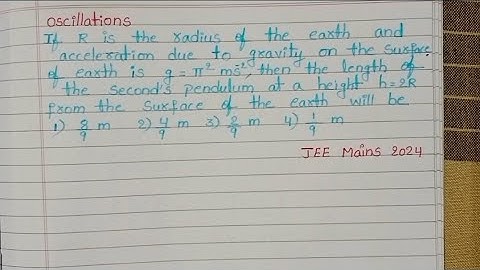 Oscillations
If R is the radius of the earth and
acceleration due to gravity on the surface
of earth is g = π² ms⁻², then the length of
the second's pendulum at a height h=2R
from the surface of the earth will be
1) 8/9 m 2) 4/9 m 3) 2/9 m 4) 1/9 m
JEE Mains 2024